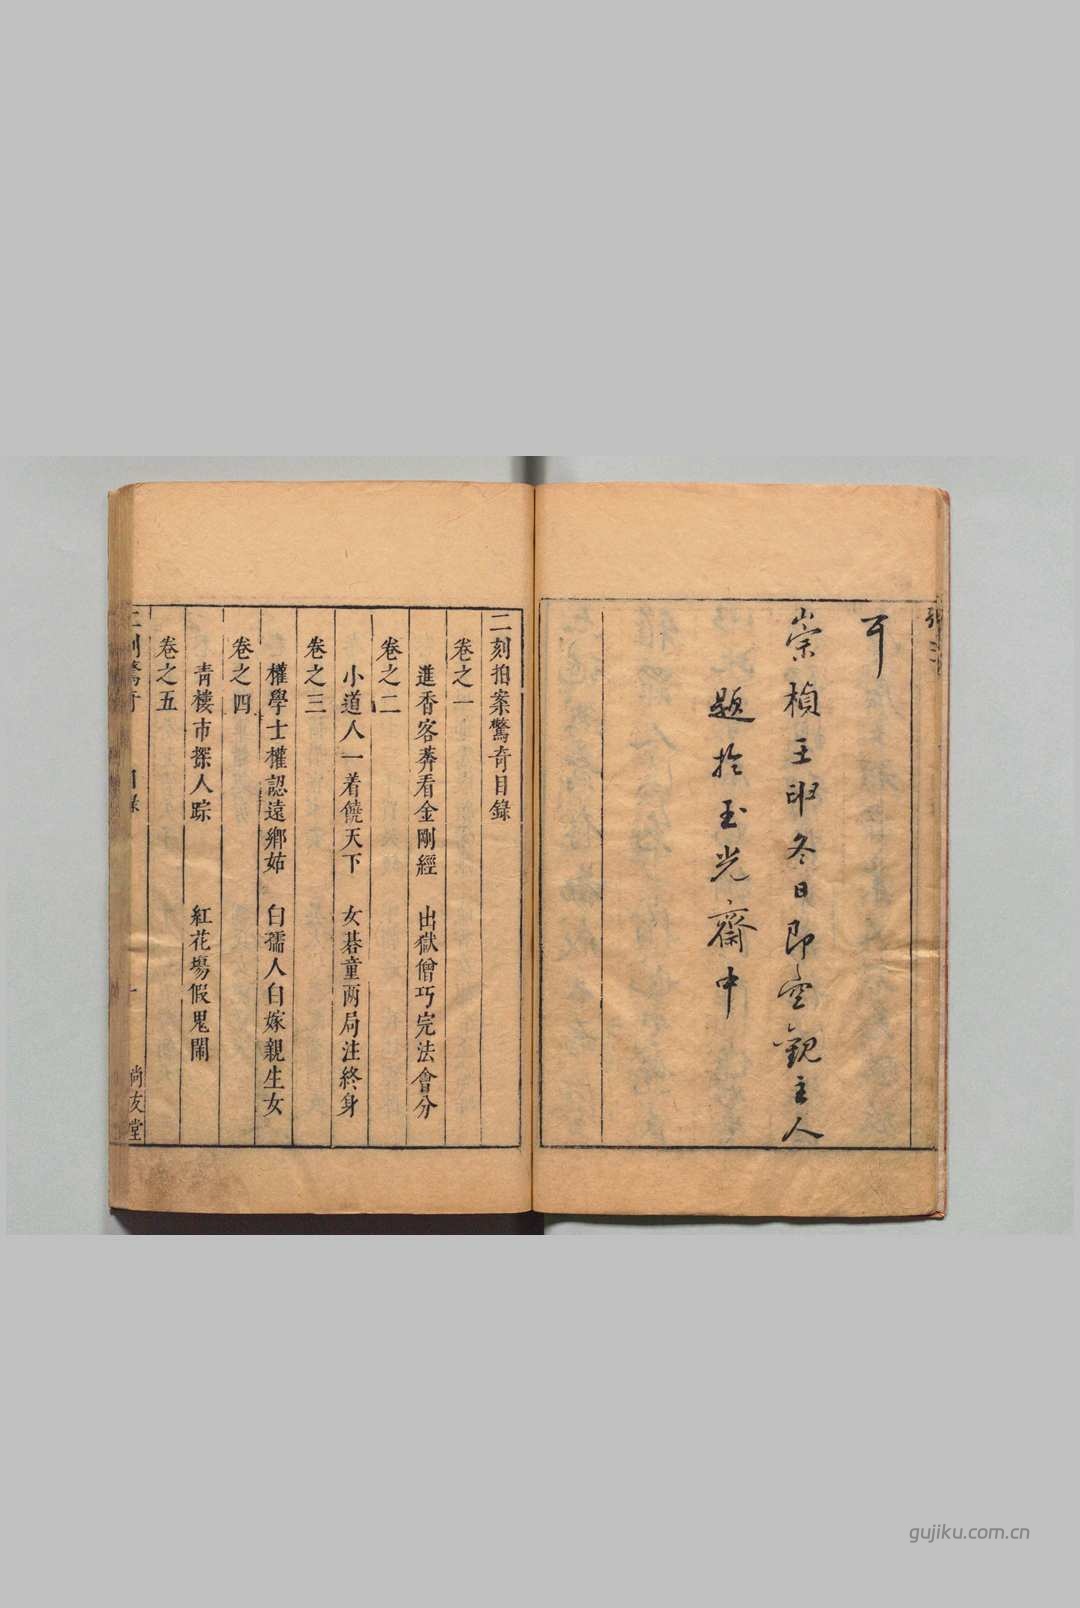 耳
崇禎壬申冬日即空觀主人
題於玉光齋中
二刻拍案驚奇目錄
卷之一
進香客莽看金剛經　出獄僧巧完法會分
卷之二
小道人一着饒天下　女碁童兩局注終身
卷之三
權學士權認遠鄉姑　白孺人白嫁親生女
卷之四
青樓市探人踪　紅花場假鬼鬧
卷之五
二刻驚奇　目錄　一　尚友堂
gujiku.com.cn